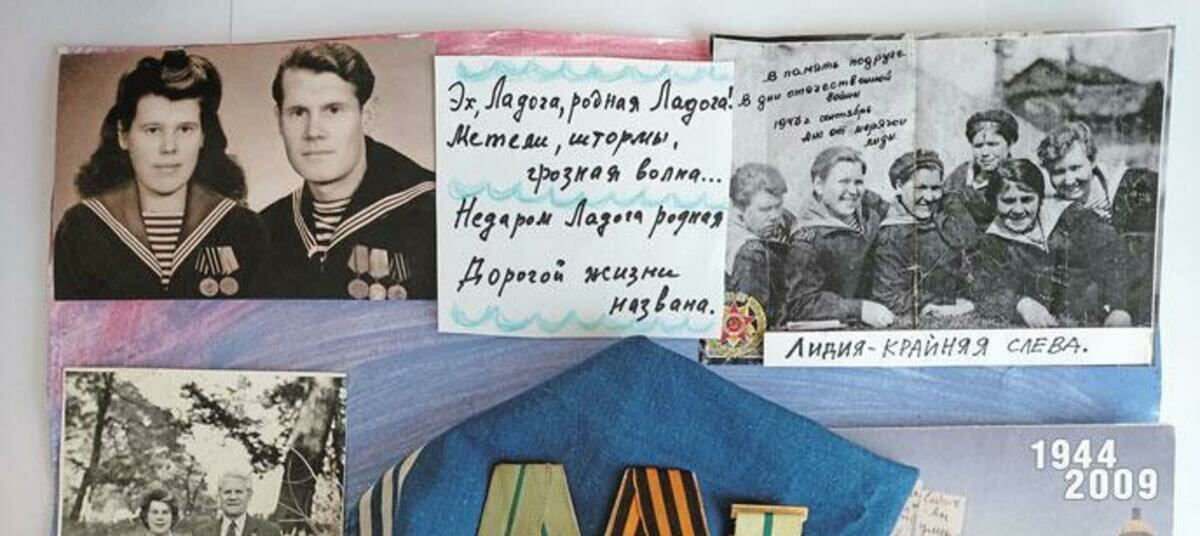 Эх, Ладога, родная Ладога!
Метели, штормы,
грозная волна...
Недаром Ладога родная
Дорогой жизни
названа.
В память подруге
В дни отечественной
войны
сентябрь
от морячки
Лиды
ЛИДИЯ - КРАЙНЯЯ СЛЕВА.
1944
2009